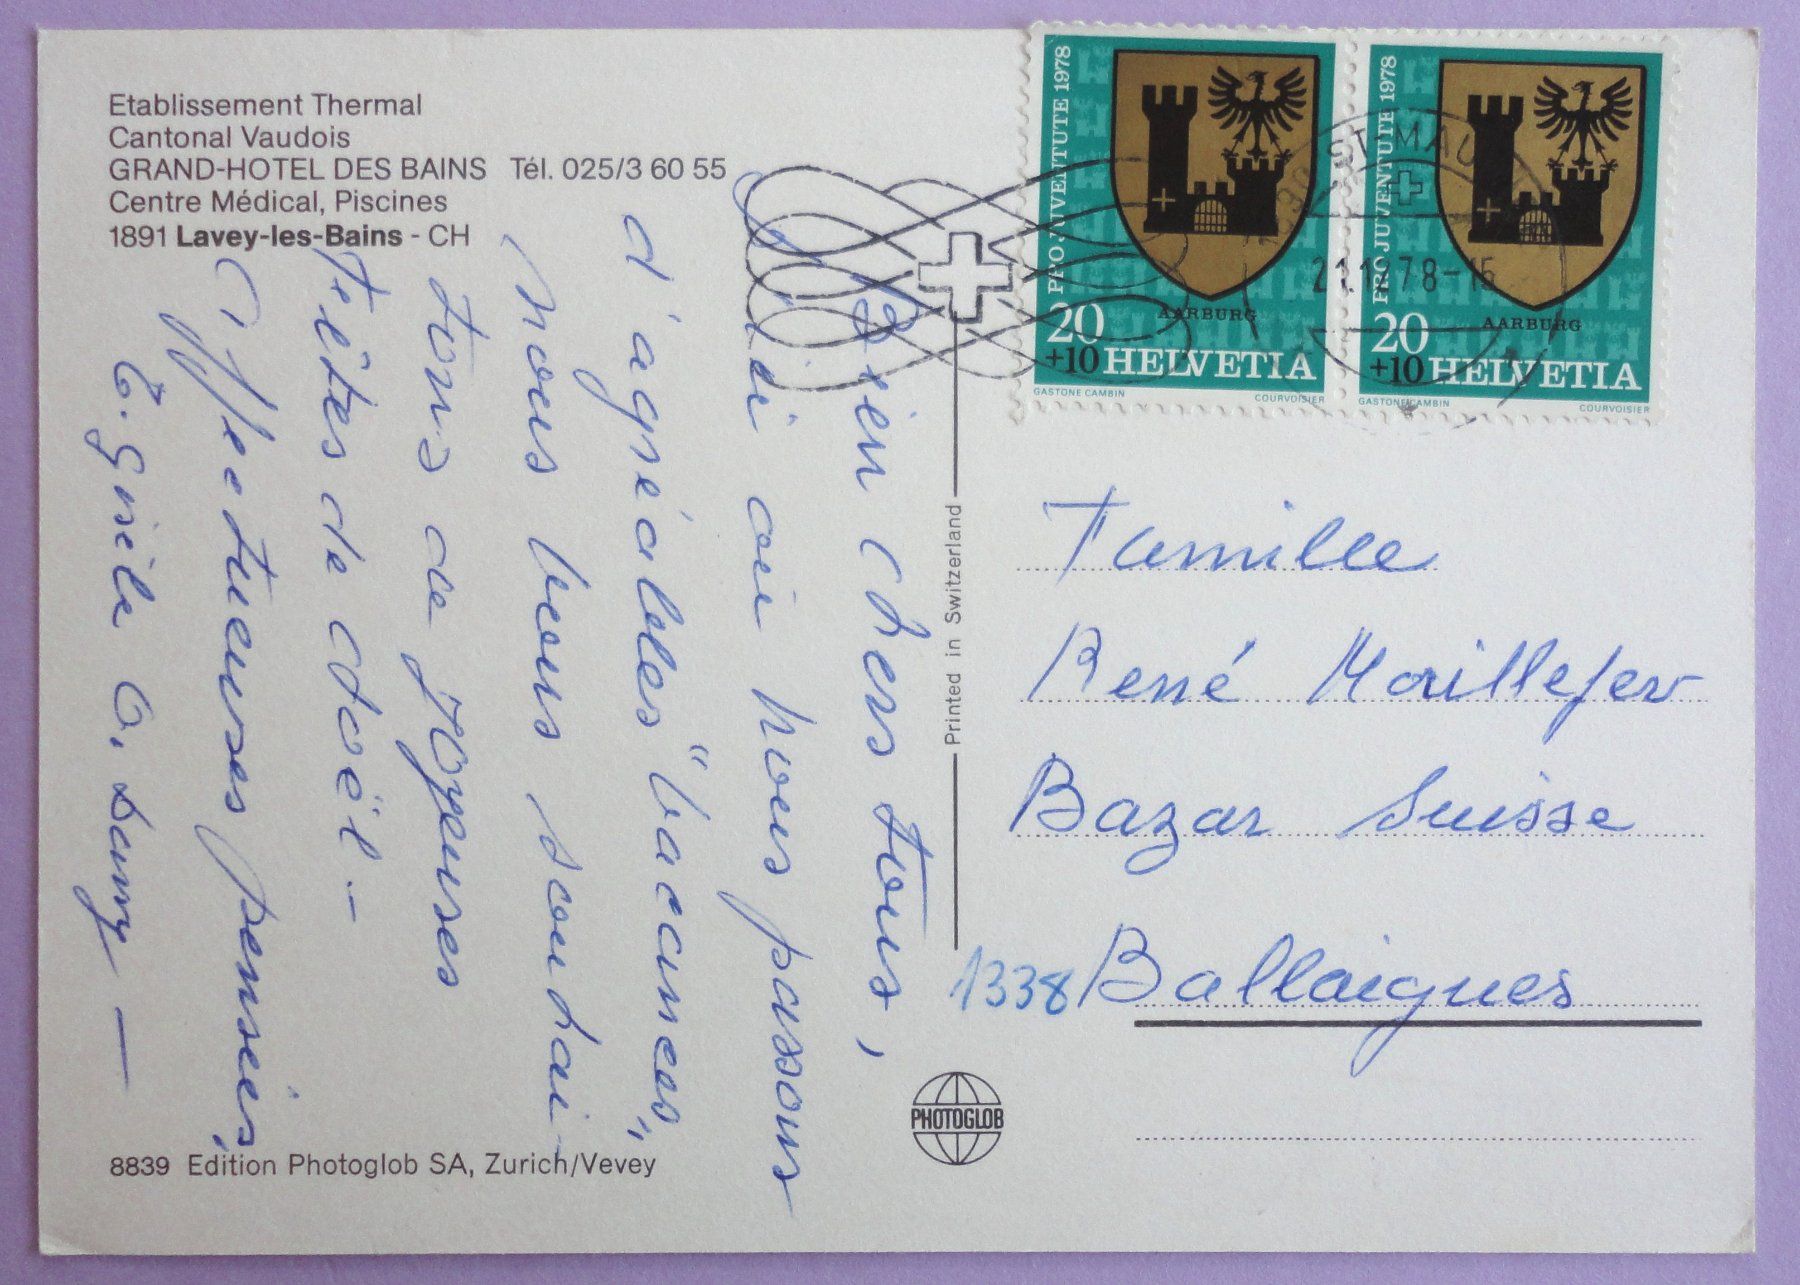 Etablissement Thermal
Cantonal Vaudois
GRAND-HOTEL DES BAINS Tél. 025/3 60 55
Centre Médical, Piscines
1891 Lavey-les-Bains - CH
Bien chers tous,
ici où nous passons
d'agréables "vacances",
nous vous souhai-
tons de joyeuses
fêtes de Noël -
Affectueuses pensées,
8839 Edition Photoglob SA, Zurich/Vevey
Printed in Switzerland
PHOTOGLOB
PRO JUVENTUTE 1978
AARBURG
20
+10 HELVETIA
GASTONE CAMBIN COURVOISIER
PRO JUVENTUTE 1978
AARBURG
20
+10 HELVETIA
GASTONE CAMBIN COURVOISIER
ST-MAU
21.12.78-15
Famille
René Maillefer
Bazar Suisse
1338 Ballaigues